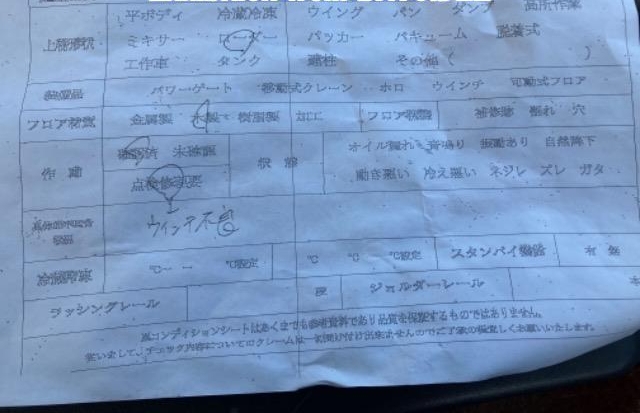 平ボディ 冷蔵冷凍 ウイング バン ダンプ 高所作業
上物形状 ミキサー ローダー パッカー バキューム 脱着式
工作車 タンク 建柱 その他( )
装備品 パワーゲート 移動式クレーン ホロ ウインチ 可動式フロア
フロア材質 金属製 木製 樹脂製 加工 フロア状態 補修跡 腐れ 穴
作動 確認済 未確認 状態 オイル漏れ 音鳴り 振動あり 自然降下
点検修理要 動き悪い 冷え悪い ネジレ ズレ ガタ
ウインチ不良
冷蔵冷凍 ℃ー ー ℃設定 ℃ ℃ ℃設定 スタンバイ機能 有 無
ラッシングレール 段 ジョルダーレール
当コンディションシートはあくまでも参考資料であり品質を保証するものではありません。
チェック内容についてのクレームは一切受け付け出来ませんのでご了承の程宜しくお願いいたします。